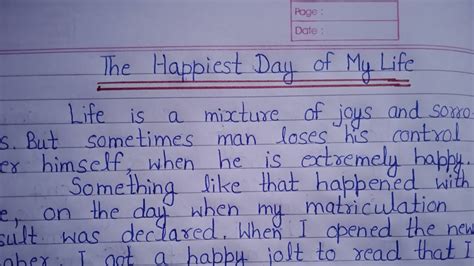 Page :
Date :
The Happiest Day of My Life
Life is a mixture of joys and sorro
s. But sometimes man loses his control
er himself, when he is extremely happy.
Something like that happened with
e, on the day when my matriculation
sult was declared. When I opened the new
aper, I got a happy jolt to read that I